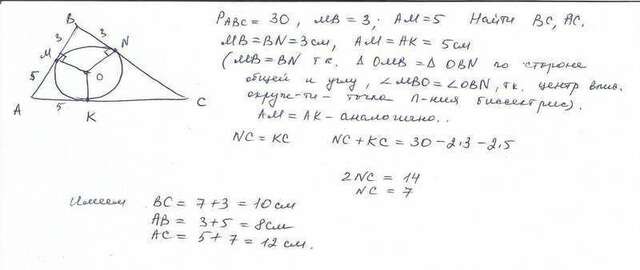 B
3 3
M N
5 O
A 5 K C
P_ABC = 30, MB = 3; AM = 5 Найти BC, AC.
MB = BN = 3 см, AM = AK = 5 см
(MB = BN т.к. Δ OMB = Δ OBN по стороне
общей и углу, ∠MBO = ∠OBN, т.к. центр впис.
окруж-ти - точка П-ния биссектрис).
AM = AK - аналогично..
NC = KC NC + KC = 30 - 2·3 - 2·5
2NC = 14
NC = 7
Имеем BC = 7 + 3 = 10 см
AB = 3 + 5 = 8 см
AC = 5 + 7 = 12 см.